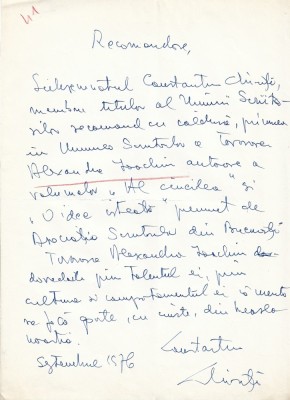 Recomandare,
Subsemnatul Constantin Chiriță,
membru titular al Uniunii Scriito-
rilor recomand cu căldură, primirea
în Uniunea Scriitorilor a Tovarășei
Alexandra Ioachim autoare a
volumelor „Al cincilea" și
„O idee isteață" premiat de
Asociația Scriitorilor din București
Tovarășa Alexandra Ioachim
dovedește prin talentul ei, prin
cultura și comportamentul ei că merită
să facă parte, cu cinste, din breasla
noastră.
Septembrie 1976
Constantin
Chiriță